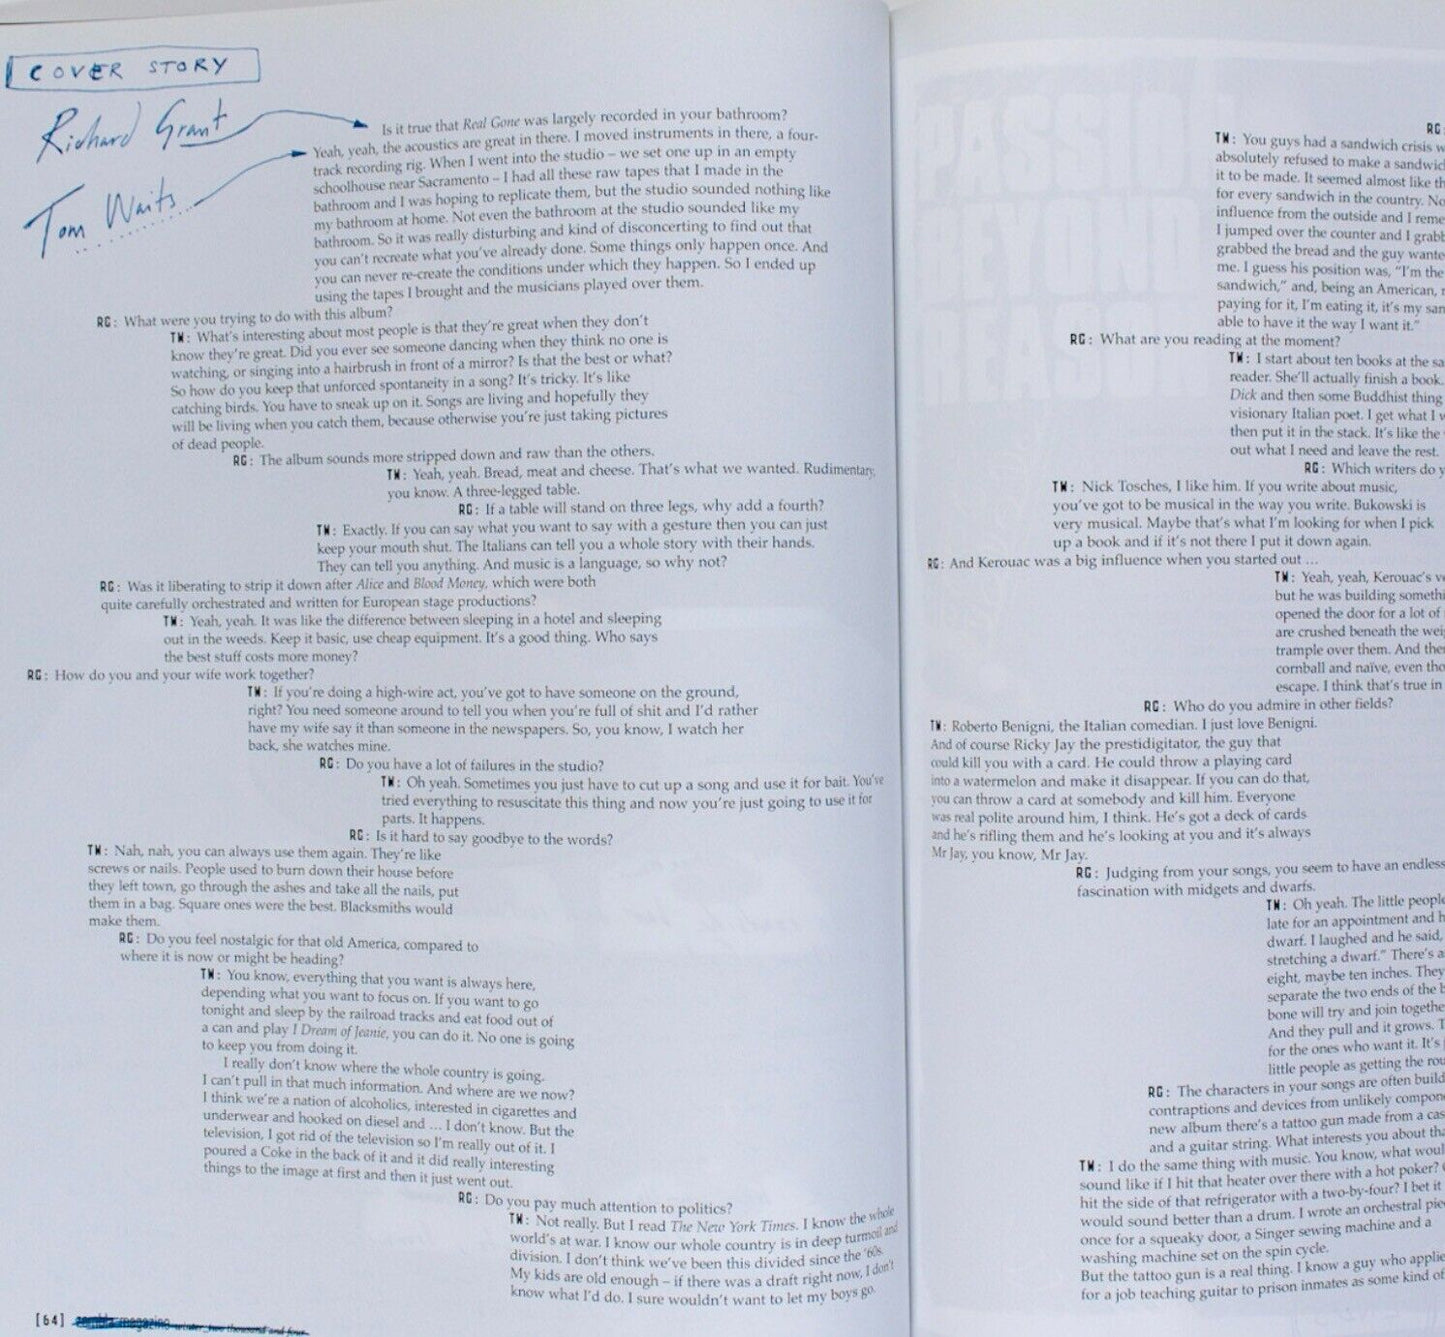 COVER STORY
Richard Grant
Tom Waits
Is it true that Real Gone was largely recorded in your bathroom?
Yeah, yeah, the acoustics are great in there. I moved instruments in there, a four-
track recording rig. When I went into the studio – we set one up in an empty
schoolhouse near Sacramento – I had all these raw tapes that I made in the
bathroom and I was hoping to replicate them, but the studio sounded nothing like
my bathroom at home. Not even the bathroom at the studio sounded like my
bathroom. So it was really disturbing and kind of disconcerting to find out that
you can't recreate what you've already done. Some things only happen once. And
you can never re-create the conditions under which they happen. So I ended up
using the tapes I brought and the musicians played over them.
RG: What were you trying to do with this album?
TW: What's interesting about most people is that they're great when they don't
know they're great. Did you ever see someone dancing when they think no one is
watching, or singing into a hairbrush in front of a mirror? Is that the best or what?
So how do you keep that unforced spontaneity in a song? It's tricky. It's like
catching birds. You have to sneak up on it. Songs are living and hopefully they
will be living when you catch them, because otherwise you're just taking pictures
of dead people.
RG: The album sounds more stripped down and raw than the others.
TW: Yeah, yeah. Bread, meat and cheese. That's what we wanted. Rudimentary,
you know. A three-legged table.
RG: If a table will stand on three legs, why add a fourth?
TW: Exactly. If you can say what you want to say with a gesture then you can just
keep your mouth shut. The Italians can tell you a whole story with their hands.
They can tell you anything. And music is a language, so why not?
RG: Was it liberating to strip it down after Alice and Blood Money, which were both
quite carefully orchestrated and written for European stage productions?
TW: Yeah, yeah. It was like the difference between sleeping in a hotel and sleeping
out in the weeds. Keep it basic, use cheap equipment. It's a good thing. Who says
the best stuff costs more money?
RG: How do you and your wife work together?
TW: If you're doing a high-wire act, you've got to have someone on the ground,
right? You need someone around to tell you when you're full of shit and I'd rather
have my wife say it than someone in the newspapers. So, you know, I watch her
back, she watches mine.
RG: Do you have a lot of failures in the studio?
TW: Oh yeah. Sometimes you just have to cut up a song and use it for bait. You've
tried everything to resuscitate this thing and now you're just going to use it for
parts. It happens.
RG: Is it hard to say goodbye to the words?
TW: Nah, nah, you can always use them again. They're like
screws or nails. People used to burn down their house before
they left town, go through the ashes and take all the nails, put
them in a bag. Square ones were the best. Blacksmiths would
make them.
RG: Do you feel nostalgic for that old America, compared to
where it is now or might be heading?
TW: You know, everything that you want is always here,
depending what you want to focus on. If you want to go
tonight and sleep by the railroad tracks and eat food out of
a can and play I Dream of Jeanie, you can do it. No one is going
to keep you from doing it.
I really don't know where the whole country is going.
I can't pull in that much information. And where are we now?
I think we're a nation of alcoholics, interested in cigarettes and
underwear and hooked on diesel and ... I don't know. But the
television, I got rid of the television so I'm really out of it. I
poured a Coke in the back of it and it did really interesting
things to the image at first and then it just went out.
RG: Do you pay much attention to politics?
TW: Not really. But I read The New York Times. I know the whole
world's at war. I know our whole country is in deep turmoil and
division. I don't think we've been this divided since the '60s.
My kids are old enough – if there was a draft right now, I don't
know what I'd do. I sure wouldn't want to let my boys go.
[64] zembla magazine winter two thousand and four
RG
TW: You guys had a sandwich crisis w
absolutely refused to make a sandwic
it to be made. It seemed almost like th
for every sandwich in the country. No
influence from the outside and I reme
I jumped over the counter and I grabb
grabbed the bread and the guy wante
me. I guess his position was, "I'm the
sandwich," and, being an American, 
paying for it, I'm eating it, it's my san
able to have it the way I want it."
RG: What are you reading at the moment?
TW: I start about ten books at the sa
reader. She'll actually finish a book.
Dick and then some Buddhist thing
visionary Italian poet. I get what I w
then put it in the stack. It's like the
out what I need and leave the rest.
RG: Which writers do y
TW: Nick Tosches, I like him. If you write about music,
you've got to be musical in the way you write. Bukowski is
very musical. Maybe that's what I'm looking for when I pick
up a book and if it's not there I put it down again.
RG: And Kerouac was a big influence when you started out ...
TW: Yeah, yeah, Kerouac's v
but he was building somethi
opened the door for a lot of
are crushed beneath the wei
trample over them. And the
cornball and naïve, even tho
escape. I think that's true in
RG: Who do you admire in other fields?
TW: Roberto Benigni, the Italian comedian. I just love Benigni.
And of course Ricky Jay the prestidigitator, the guy that
could kill you with a card. He could throw a playing card
into a watermelon and make it disappear. If you can do that,
you can throw a card at somebody and kill him. Everyone
was real polite around him, I think. He's got a deck of cards
and he's rifling them and he's looking at you and it's always
Mr Jay, you know, Mr Jay.
RG: Judging from your songs, you seem to have an endless
fascination with midgets and dwarfs.
TW: Oh yeah. The little people
late for an appointment and h
dwarf. I laughed and he said,
stretching a dwarf." There's a
eight, maybe ten inches. They
separate the two ends of the b
bone will try and join togethe
And they pull and it grows. T
for the ones who want it. It's
little people as getting the rou
RG: The characters in your songs are often build
contraptions and devices from unlikely compon
new album there's a tattoo gun made from a cas
and a guitar string. What interests you about tha
TW: I do the same thing with music. You know, what woul
sound like if I hit that heater over there with a hot poker?
hit the side of that refrigerator with a two-by-four? I bet it
would sound better than a drum. I wrote an orchestral pie
once for a squeaky door, a Singer sewing machine and a
washing machine set on the spin cycle.
But the tattoo gun is a real thing. I know a guy who applie
for a job teaching guitar to prison inmates as some kind of